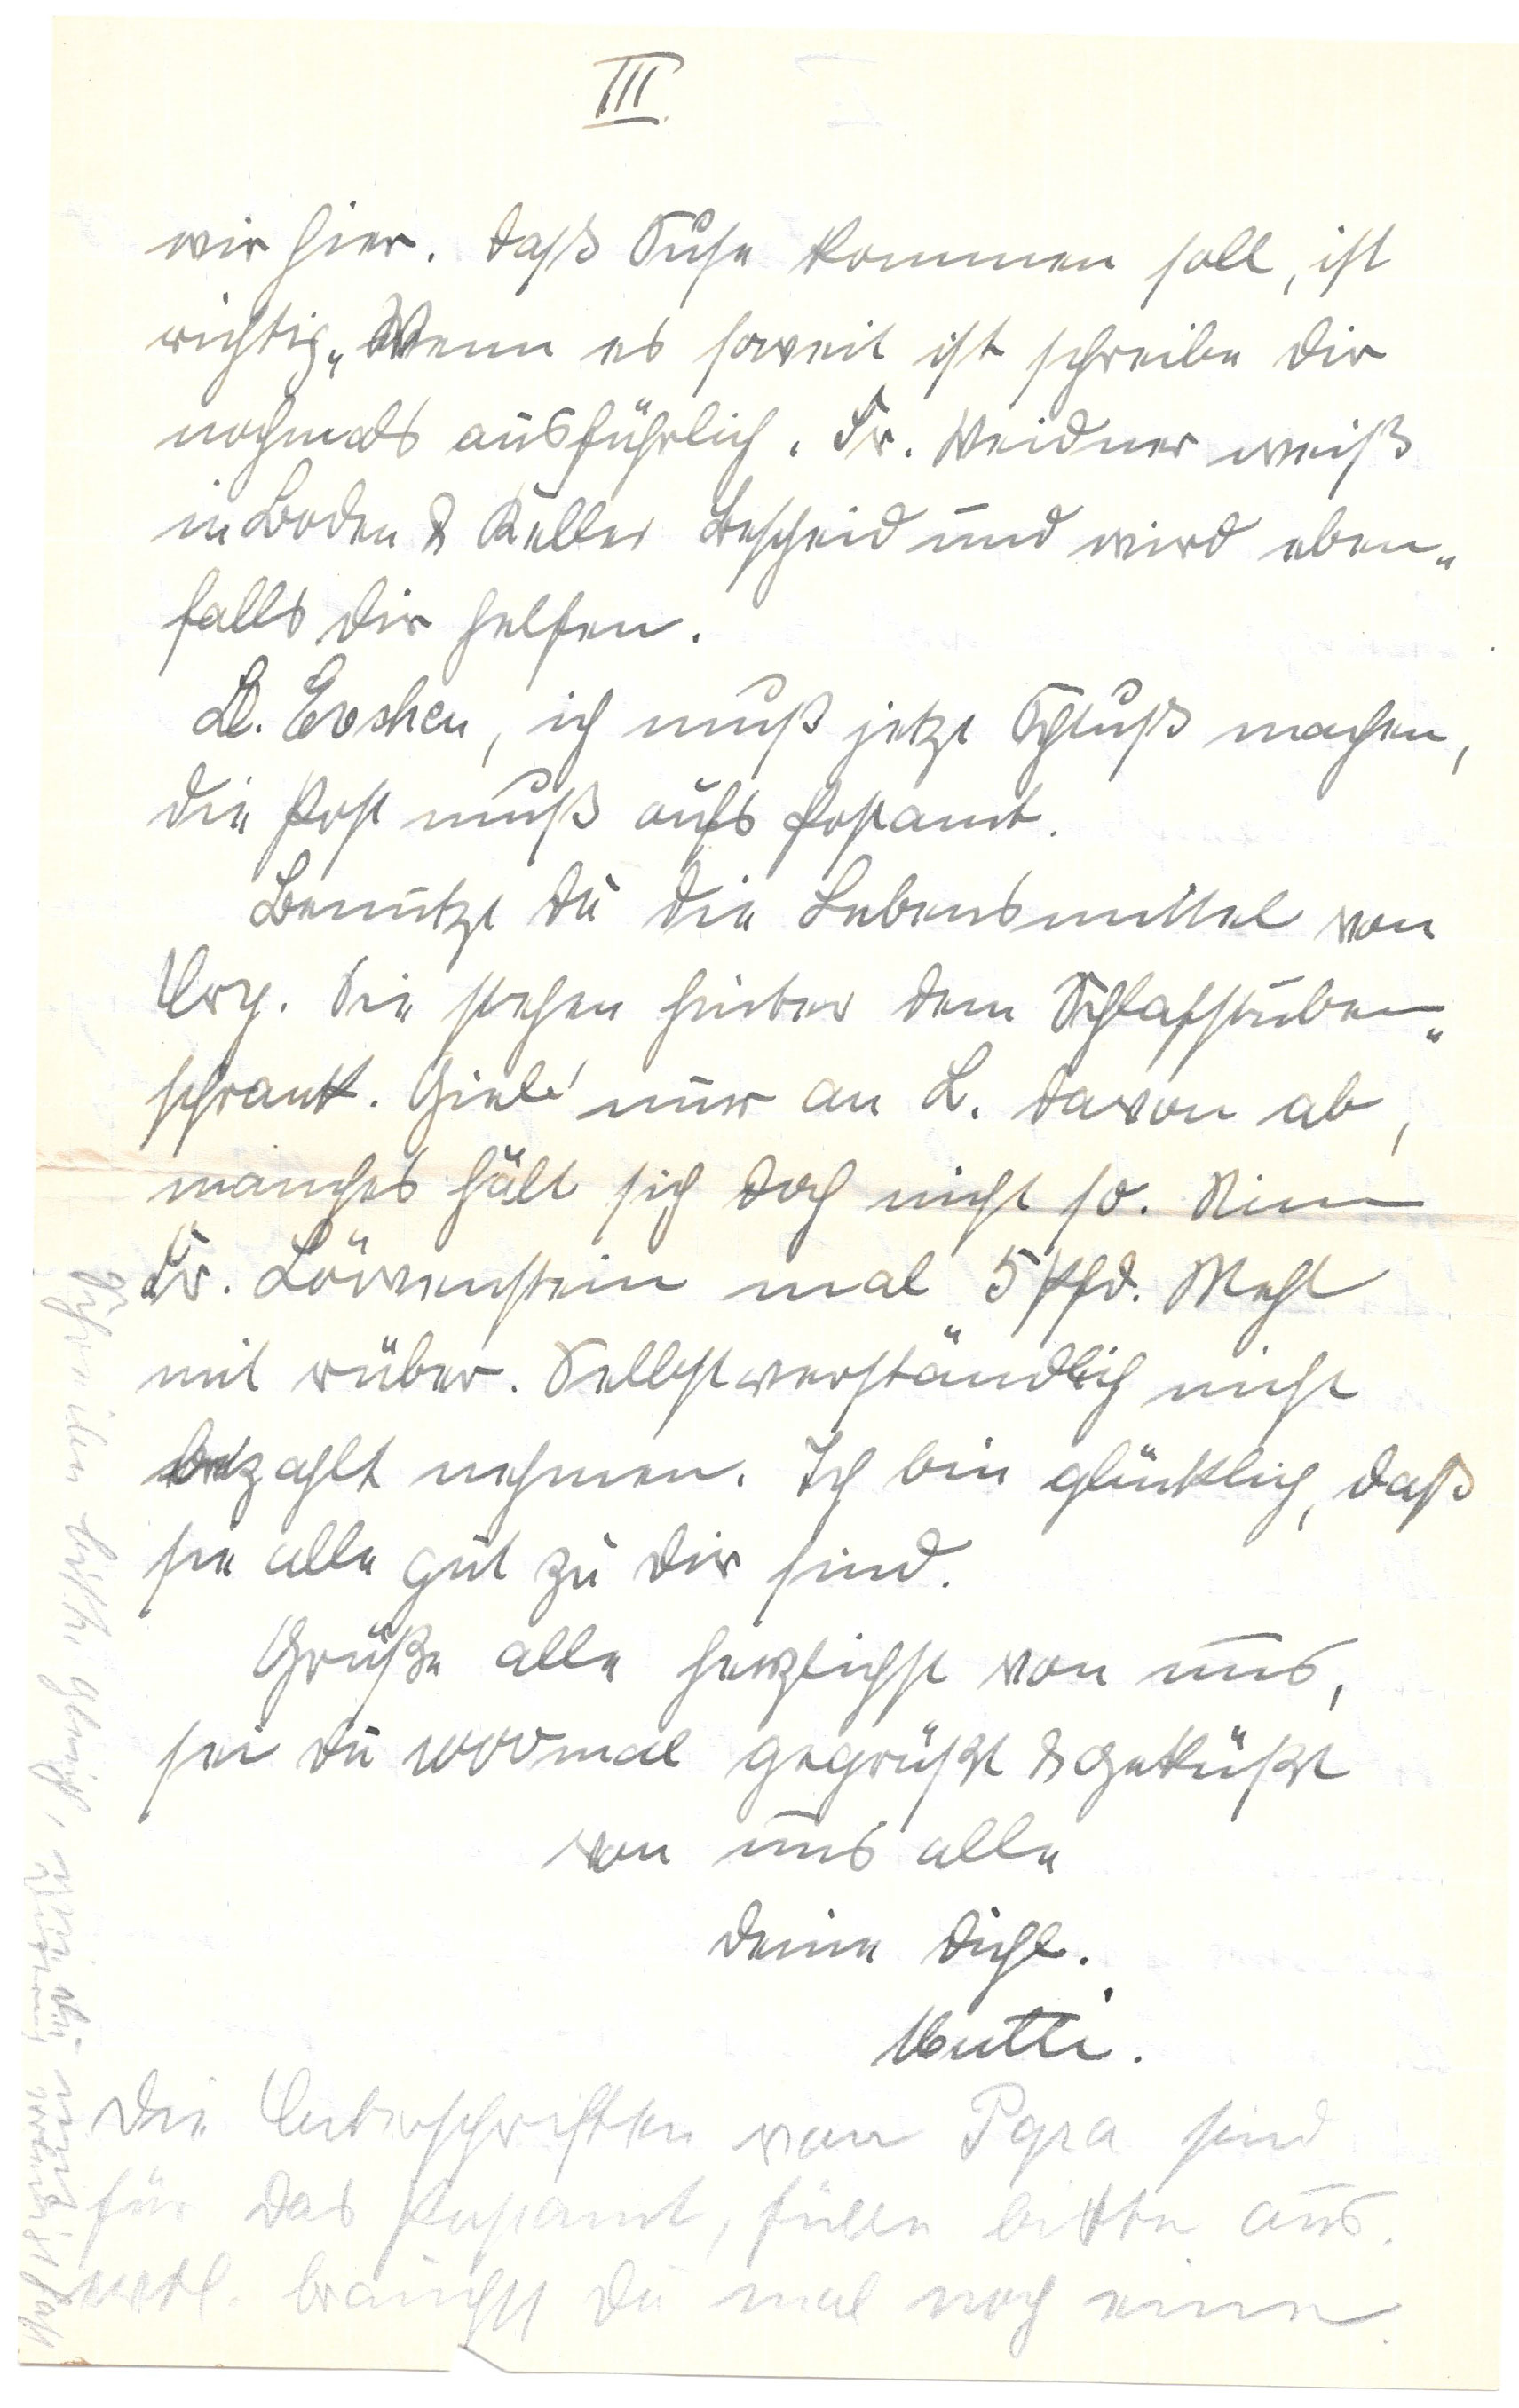 III.
wir hier. Daß Suse kommen soll, ist
richtig. Wenn es soweit ist schreibe dir
nochmals ausführlich. Fr. Weidner weiß
in Boden & Keller Bescheid und wird eben„
falls dir helfen.
Lb. Evchen, ich muß jetzt Schluß machen,
die Post muß aufs Postamt.
Benutze du die Lebensmittel von
Ury. Sie stehen hinter dem Schlafstuben„
schrank. Gieb' nur an L. davon ab,
manches hält sich doch nicht so. Nimm
Fr. Löwenstein mal 5 Pfd. Mehl
mit rüber. Selbstverständlich nicht
bezahlt nehmen. Ich bin glücklich, daß
sie alle gut zu dir sind.
Grüße alle herzlichst von uns,
sei du 1000mal gegrüßt & geküßt
von uns alle
deine dichl.
Mutti.
Die Unterschriften von Papa sind
für das Postamt, fülle bitte aus.
evtl. brauchst du mal noch eine.